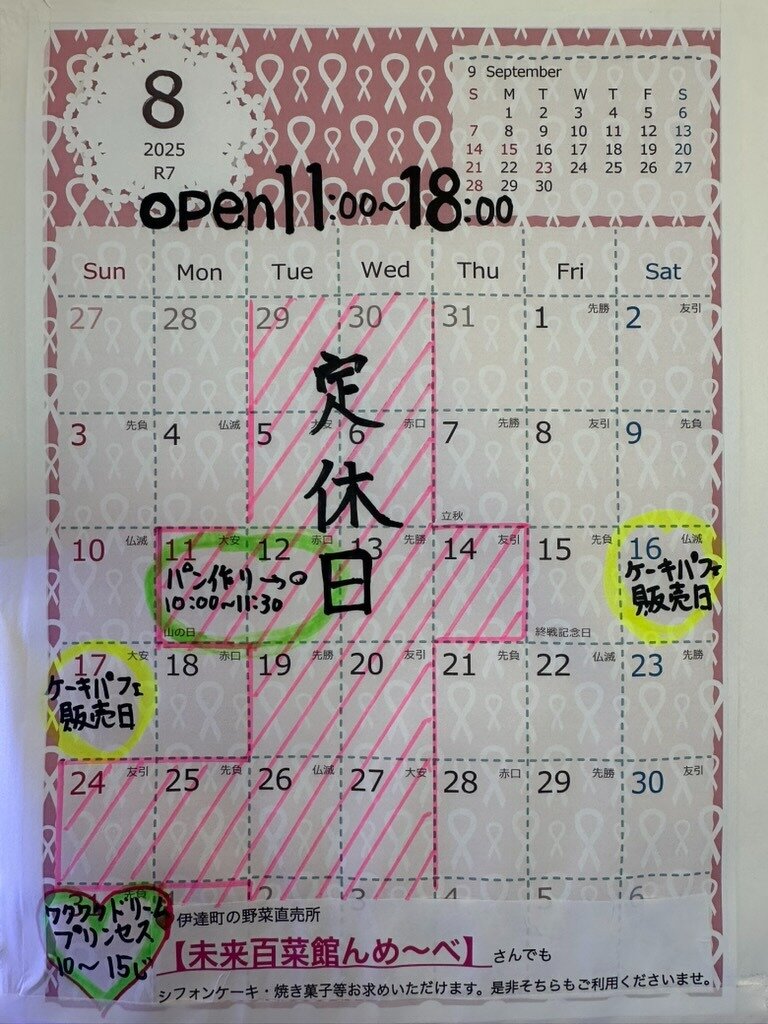 8
2025
R7
9 September
S M T W T F S
1 2 3 4 5 6
7 8 9 10 11 12 13
14 15 16 17 18 19 20
21 22 23 24 25 26 27
28 29 30
open 11:00~18:00
Sun Mon Tue Wed Thu Fri Sat
27 28 29 30 31 1 先勝 2 友引
定休日
3 先負 4 仏滅 5 大安 6 赤口 7 先勝 8 友引 9 先負
立秋
10 仏滅 11 大安 12 赤口 13 先勝 14 友引 15 先負 16 仏滅
パン作り→○
10:00~11:30
山の日
終戦記念日
ケーキパフェ
販売日
17 大安 18 赤口 19 先勝 20 友引 21 先負 22 仏滅 23 先勝
ケーキパフェ
販売日
24 友引 25 先負 26 仏滅 27 大安 28 赤口 29 先勝 30 友引
2 3 4 5 6
ワクワクドリーム
プリンセス
10~15じ
伊達町の野菜直売所
【未来百菜館んめ～べ】さんでも
シフォンケーキ・焼き菓子等お求めいただけます。是非そちらもご利用くださいませ。